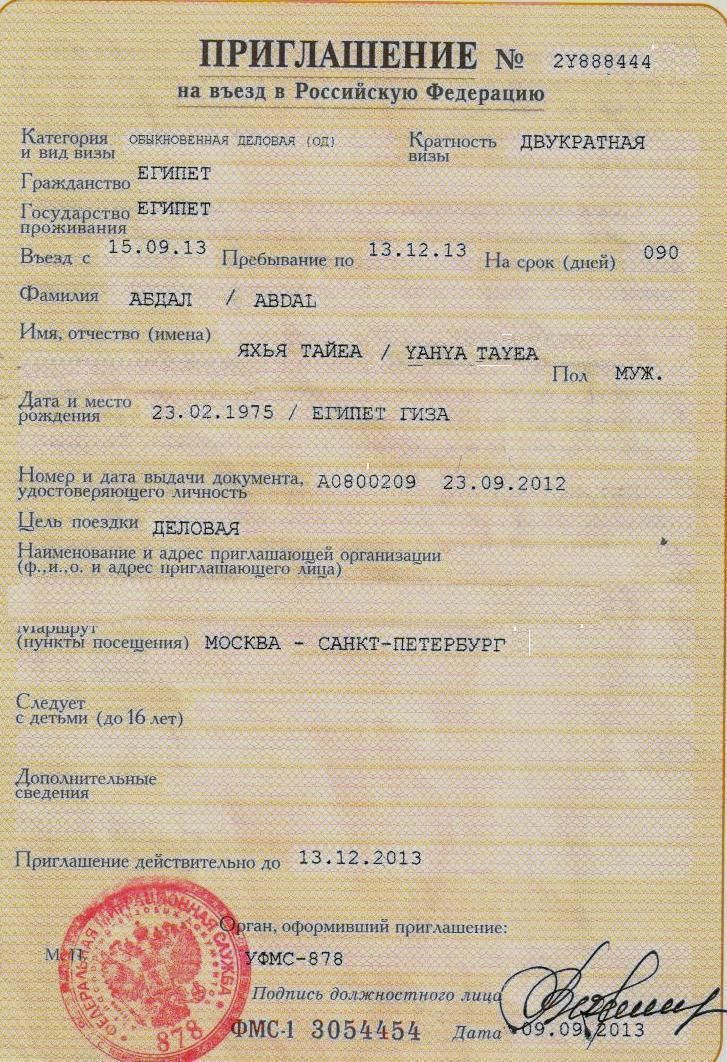 ПРИГЛАШЕНИЕ № 2Y888444
на въезд в Российскую Федерацию
Категория и вид визы ОБЫКНОВЕННАЯ ДЕЛОВАЯ (ОД) Кратность визы ДВУКРАТНАЯ
Гражданство ЕГИПЕТ
Государство проживания ЕГИПЕТ
Въезд с 15.09.13 Пребывание по 13.12.13 На срок (дней) 090
Фамилия АБДАЛ / ABDAL
Имя, отчество (имена) ЯХЬЯ ТАЙЕА / YAHYA TAYEA
Пол МУЖ.
Дата и место рождения 23.02.1975 / ЕГИПЕТ ГИЗА
Номер и дата выдачи документа, удостоверяющего личность А0800209 23.09.2012
Цель поездки ДЕЛОВАЯ
Наименование и адрес приглашающей организации
(ф.,и.,о. и адрес приглашающего лица)
Маршрут
(пункты посещения) МОСКВА - САНКТ-ПЕТЕРБУРГ
Следует
с детьми (до 16 лет)
Дополнительные
сведения
Приглашение действительно до 13.12.2013
Орган, оформивший приглашение:
М.П. УФМС-878
ФЕДЕРАЛЬНАЯ МИГРАЦИОННАЯ СЛУЖБА
878
Подпись должностного лица
ФМС-1 3054454 Дата 09.09.2013